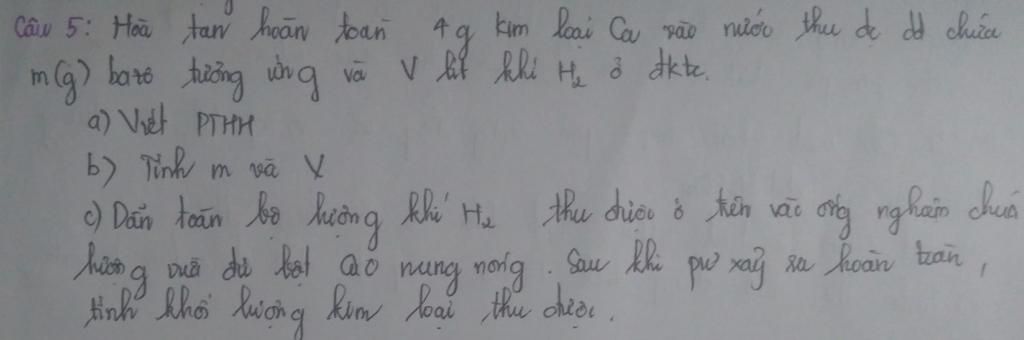 Câu 5: Hoà tan hoàn toàn 4g kim loại Ca vào nước thu dc dd chứa
m(g) bazơ tương ứng và V lít khí H₂ ở đktc.
a) Viết PTHH
b) Tính m và V
c) Dẫn toàn bộ lượng khí H₂ thu được ở trên vào ống nghiệm chứa
lượng vừa đủ bột CuO nung nóng. Sau khi pư xảy ra hoàn toàn,
tính khối lượng kim loại thu được.